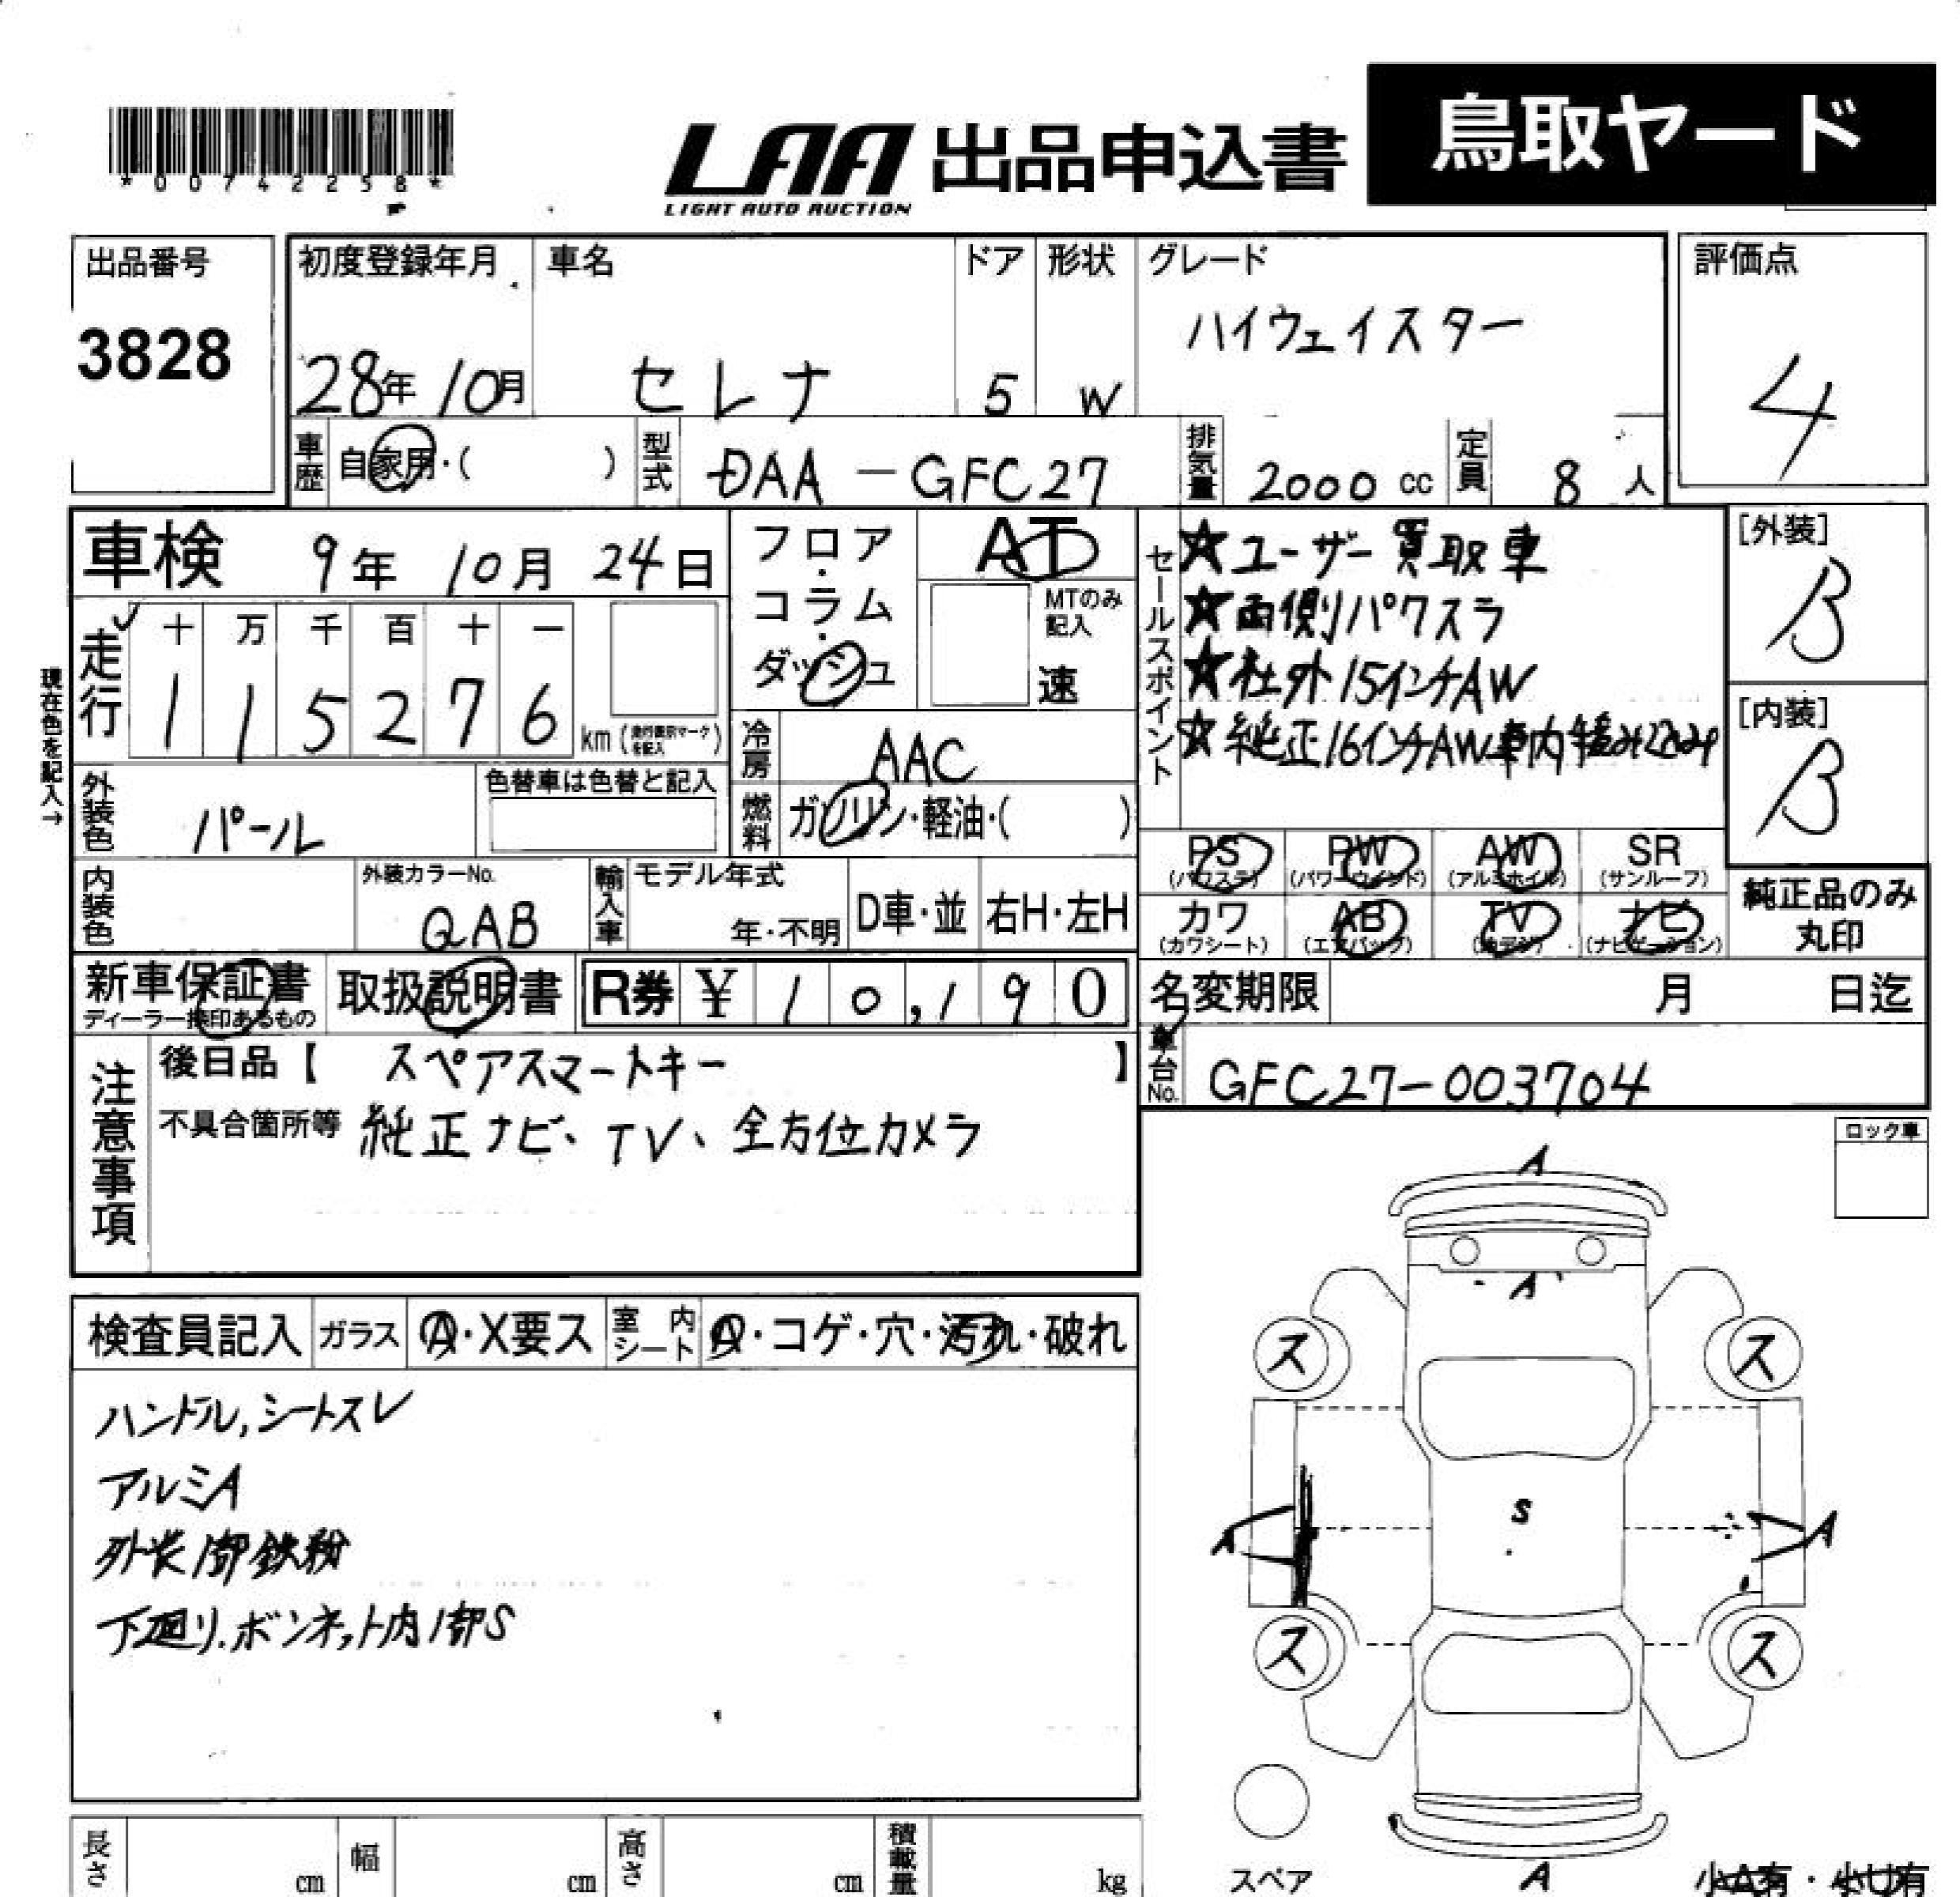 *00742258*
LAA 出品申込書
LIGHT AUTO AUCTION
鳥取ヤード
出品番号
3828
初度登録年月
28年 10月
車名
セレナ
ドア
5
形状
W
グレード
ハイウェイスター
評価点
4
車歴
自家用・( )
型式
DAA-GFC27
排気量
2000 cc
定員
8 人
車検 9年 10月 24日
走行
十 万 千 百 十 一
1 1 5 2 7 6
km(走行距離マークを記入)
現在色を記入→
外装色
パール
色替車は色替と記入
内装色
外装カラーNo.
QAB
輸入車
モデル年式
年・不明
D車・並
右H・左H
フロア・コラム・ダッシュ
AT
MTのみ記入
速
冷房
AAC
燃料
ガソリン・軽油・( )
セールスポイント
☆ユーザー買取車
☆両側パワスラ
☆社外15インチAW
☆純正16インチAW車内積み込み
[外装]
B
[内装]
B
PS
(パワステ)
PW
(パワーウインド)
AW
(アルミホイル)
SR
(サンルーフ)
カワ
(カワシート)
AB
(エアバッグ)
TV
(地デジ)
ナビ
(ナビゲーション)
純正品のみ丸印
新車保証書
ディーラー捺印あるもの
取扱説明書
R券 ¥ 10,190
名変期限 月 日迄
車台No.
GFC27-003704
注意事項
後日品【 スペアスマートキー 】
不具合箇所等 純正ナビ、TV、全方位カメラ
ロック車
検査員記入
ガラス
A・X要ス
室内シート
A・コゲ・穴・汚れ・破れ
ハンドル,シートスレ
アルミA
外装1部鉄粉
下廻り.ボンネット内1部S
A
A
ス
ス
S
A
A
ス
ス
スペア
A
小A有・小U有
長さ cm
幅 cm
高さ cm
積載量 kg